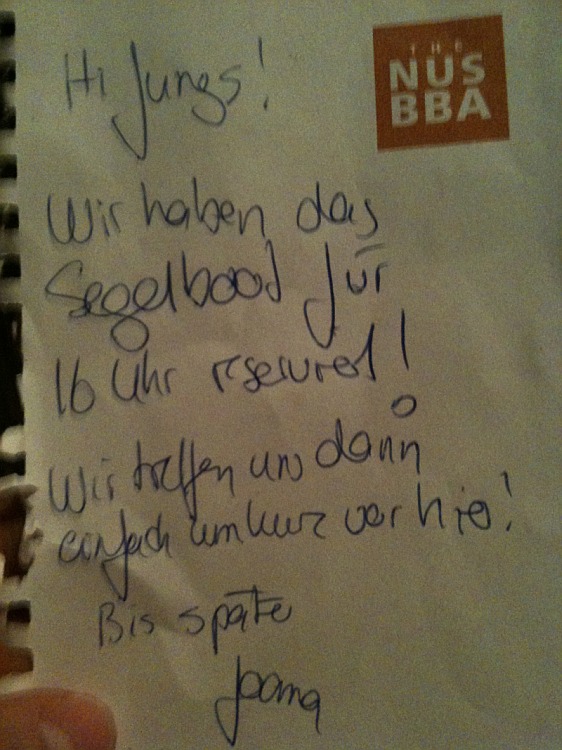 THE
NUS
BBA
Hi Jungs!
Wir haben das
Segelbood für
16 Uhr reserved!
Wir treffen uns dann
einfach um kurz vor hie!
Bis späte
Joana